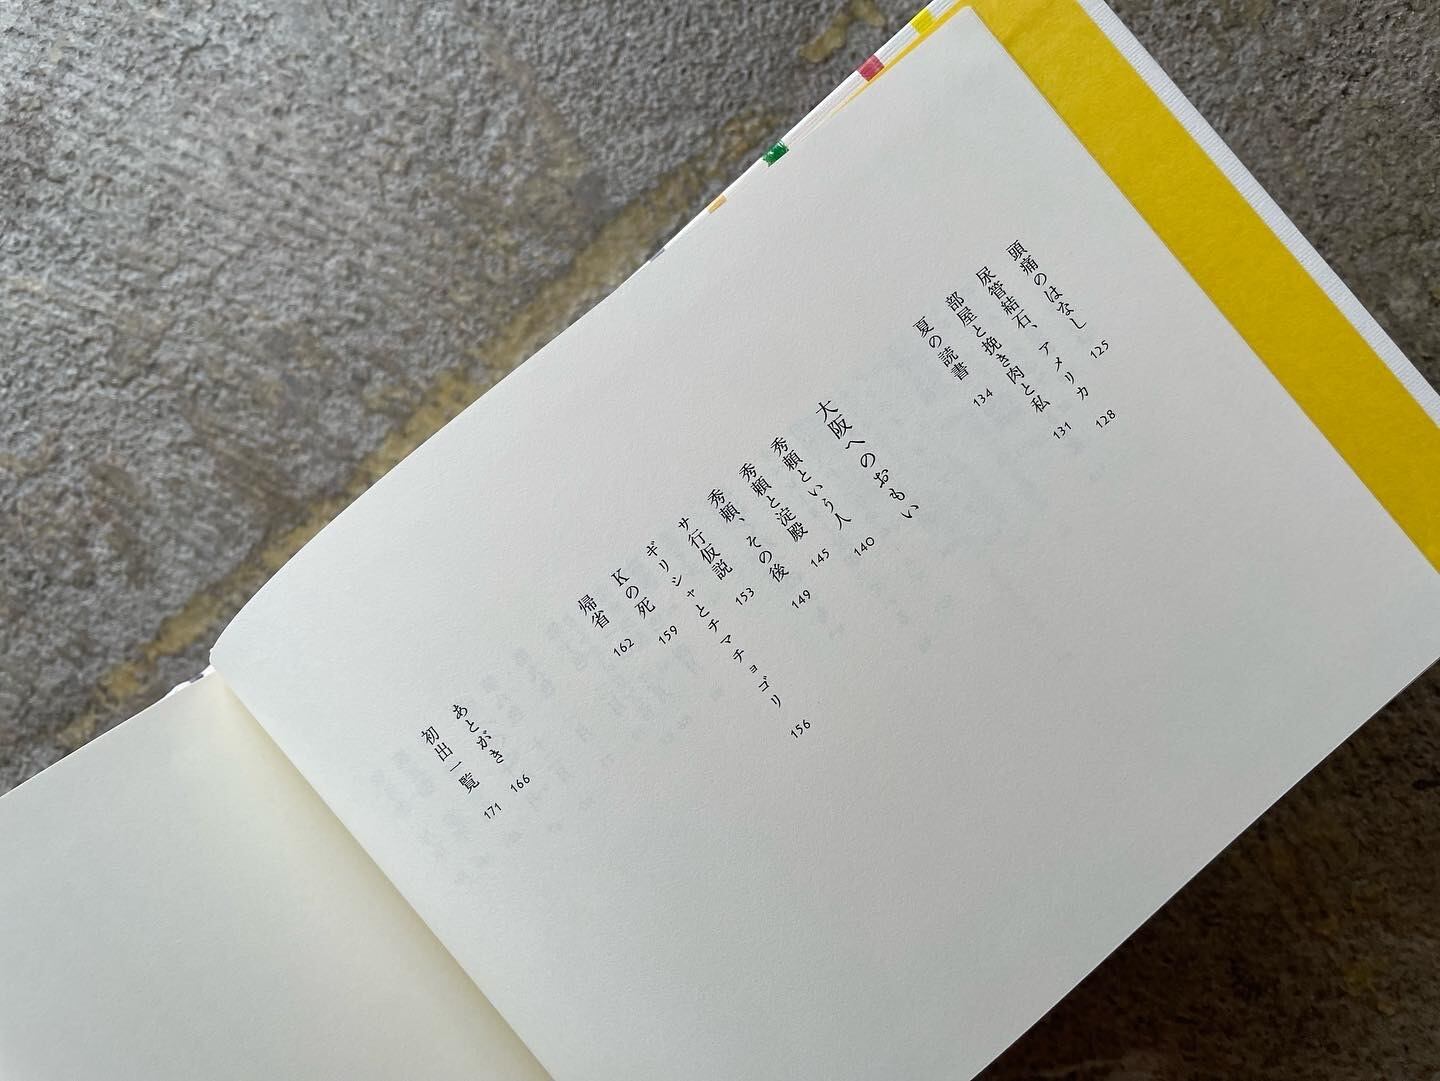 頭痛のはなし 125
尿管結石、アメリカ 128
部屋と挽き肉と私 131
夏の読書 134
大阪へのおもい 140
秀頼という人 145
秀頼と淀殿 149
秀頼、その後 153
サ行仮説 156
ギリシャとチマチョゴリ 159
Kの死 162
帰省
あとがき 166
初出一覧 171